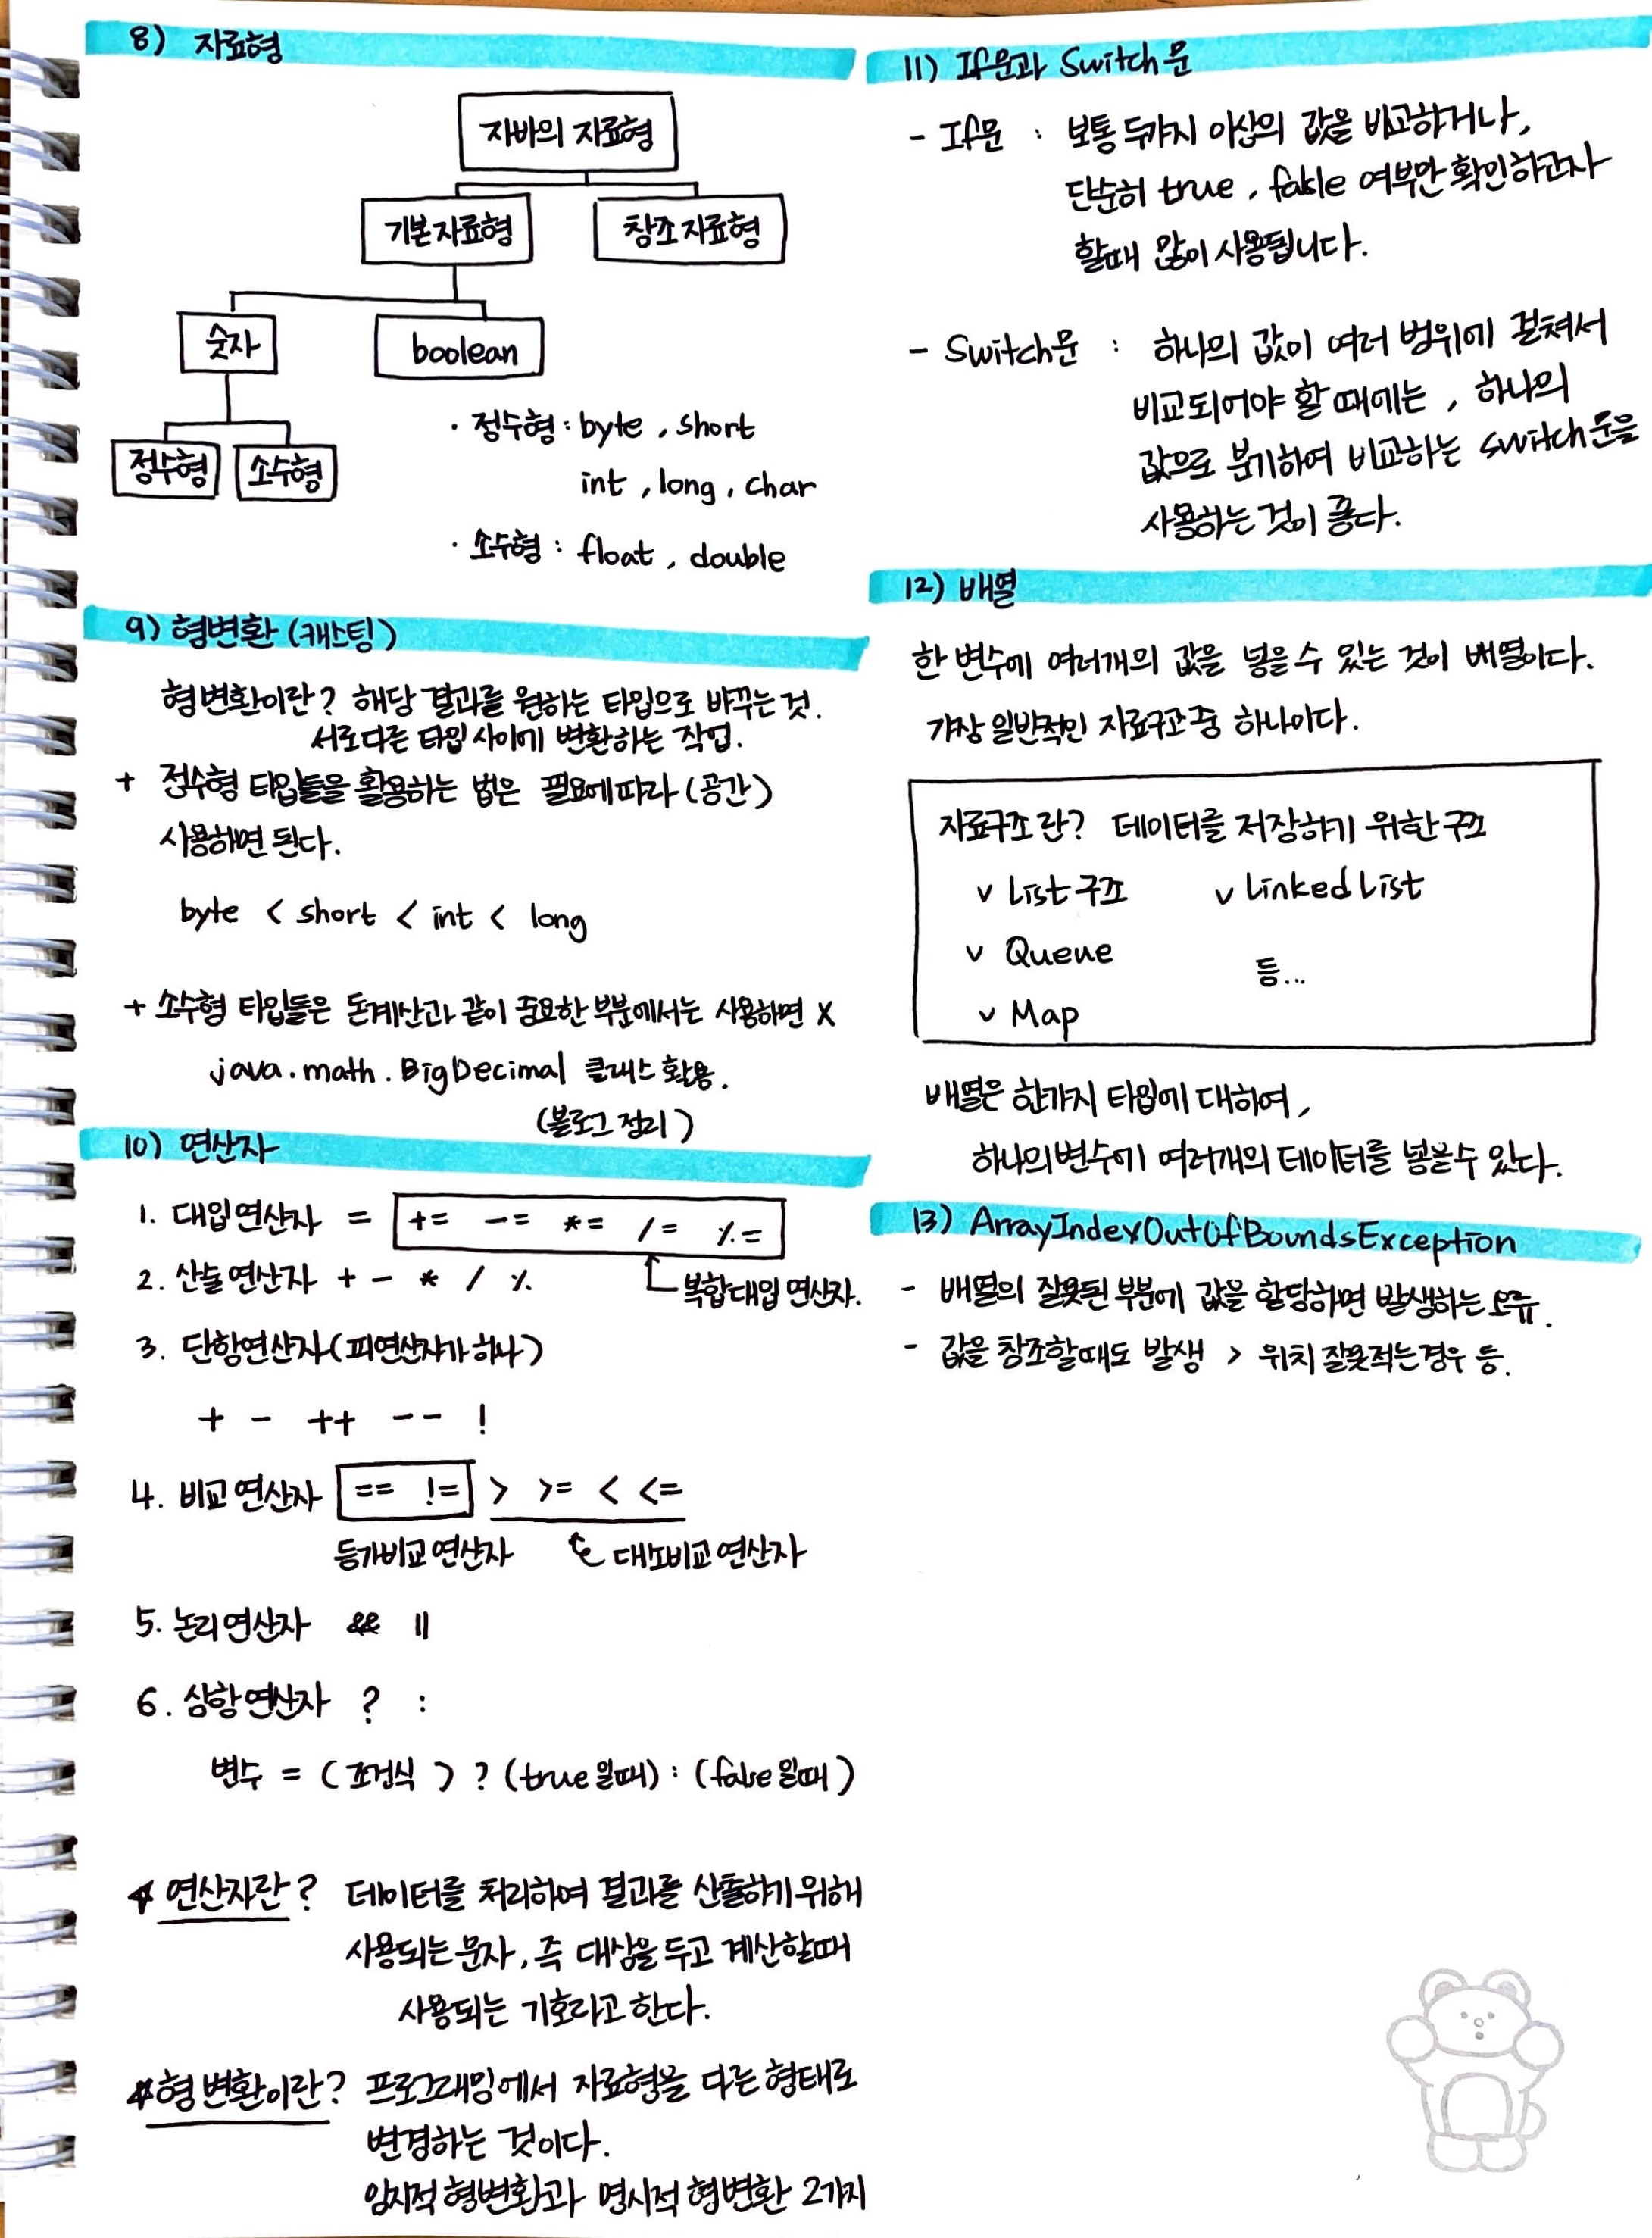 8) 자료형
자바의 자료형
기본자료형
창조 자료형
숫자
boolean
정수형
소수형
· 정수형 : byte , short
int , long , char
· 소수형 : float , double
9) 형변환 (캐스팅)
형변환이란? 해당 결과를 원하는 타입으로 바꾸는 것.
서로다른 타입 사이에 변환하는 작업.
+ 정수형 타입들을 활용하는 법은 필요에따라 (공간)
사용하면 된다.
byte < short < int < long
+ 소수형 타입들은 돈계산과 같이 중요한 부분에서는 사용하면 X
java.math.BigDecimal 클래스 활용.
(블로그 정리)
10) 연산자
1. 대입연산자 = += -= *= /= %=
복합대입 연산자.
2. 산술 연산자 + - * / %
3. 단항연산자 (피연산자가 하나)
+ - ++ -- !
4. 비교 연산자 == != > >= < <=
등가비교 연산자
대소비교 연산자
5. 논리 연산자 && ||
6. 삼항 연산자 ? :
변수 = (조건식) ? (true 일때) : (false 일때)
연산자란? 데이터를 처리하여 결과를 산출하기 위해
사용되는 문자, 즉 대상을 두고 계산할때
사용되는 기호라고 한다.
형변환이란? 프로그래밍에서 자료형을 다른 형태로
변경하는 것이다.
암시적 형변환과 명시적 형변환 2가지
11) If문과 Switch문
- If문 : 보통 두가지 이상의 값을 비교하거나,
단순히 true , fasle 여부만 확인하고자
할때 많이 사용됩니다.
- Switch문 : 하나의 값이 여러 범위에 걸쳐서
비교되어야 할 때에는 , 하나의
값으로 분기하여 비교하는 switch문을
사용하는 것이 좋다.
12) 배열
한 변수에 여러개의 값을 넣을 수 있는 것이 배열이다.
가장 일반적인 자료구조중 하나이다.
자료구조란? 데이터를 저장하기 위한 구조
v List 구조 v Linked List
v Queue
등...
v Map
배열은 한가지 타입에 대하여,
하나의변수에 여러개의 데이터를 넣을수 있다.
13) ArrayIndexOutOfBoundsException
- 배열의 잘못된 부분에 값을 할당하면 발생하는 오류.
- 값을 창조할때도 발생 > 위치 잘못적는경우 등.